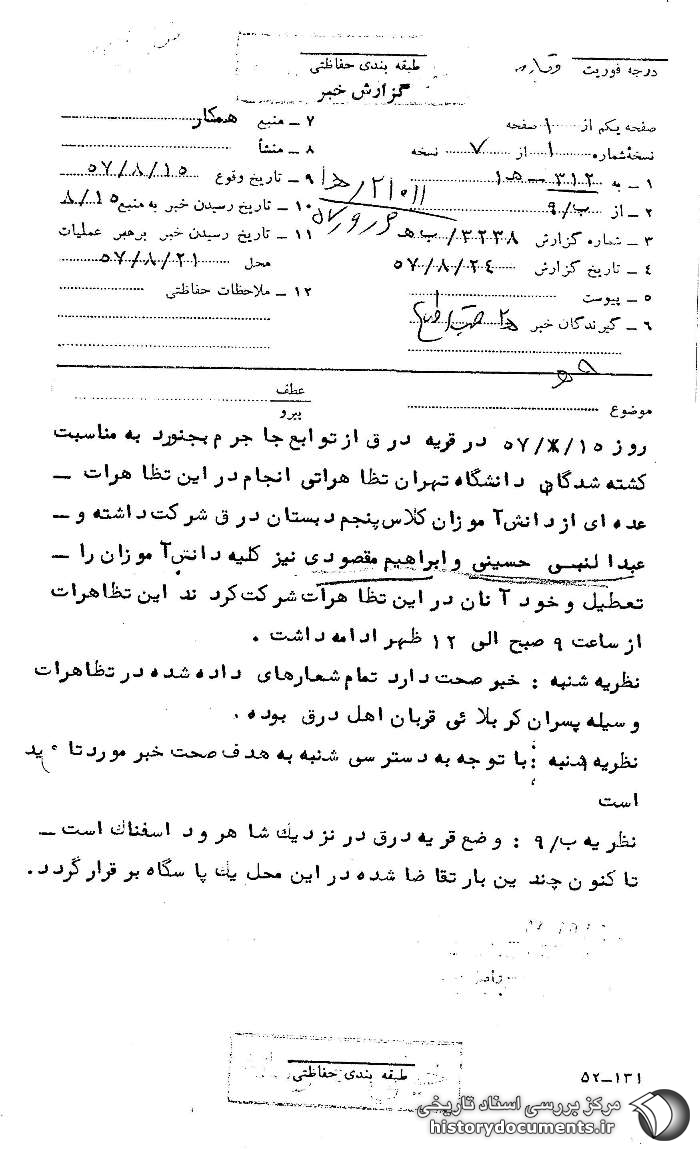 طبقه بندی حفاظتی
گزارش خبر
درجه فوریت
صفحه یکم از ۱ صفحه
نسخهٔ شماره ۱ از ۷ نسخه
۱ ـ به ۳۱۲ ـ ه‍ ۱
۲ ـ از ۹/ب
۳ ـ شماره گزارش ۳۲۳۸/ب ه‍
۴ ـ تاریخ گزارش ۵۷/۸/۲۴
۵ ـ پیوست
۶ ـ گیرندگان خبر
۷ ـ منبع همکار
۸ ـ منشأ
۹ ـ تاریخ وقوع ۵۷/۸/۱۵
۱۰ ـ تاریخ رسیدن خبر به منبع ۸/۱۵
۱۱ ـ تاریخ رسیدن خبر برهبر عملیات
محل ۵۷/۸/۲۱
۱۲ ـ ملاحظات حفاظتی
موضوع
عطف
پیرو
روز ۵۷/۸/۱۵ در قریه درق از توابع جاجرم بجنورد به مناسبت
کشته شدگان دانشگاه تهران تظاهراتی انجام در این تظاهرات ـ
عده ای از دانش آموزان کلاس پنجم دبستان درق شرکت داشته و ـ
عبدالنبی حسینی و ابراهیم مقصودی نیز کلیه دانش آموزان را ـ
تعطیل و خود آنان در این تظاهرات شرکت کردند این تظاهرات
از ساعت ۹ صبح الی ۱۲ ظهر ادامه داشت .
نظریه شنبه : خبر صحت دارد تمام شعارهای داده شده در تظاهرات
وسیله پسران کربلائی قربان اهل درق بوده .
نظریه ۱شنبه : با توجه به دسترسی شنبه به هدف صحت خبر مورد تائید
است
نظریه ۹/ب : وضع قریه درق در نزدیك شاهرود اسفناك است ـ
تاکنون چندین بار تقاضا شده در این محل یك پاسگاه برقرار گردد.
طبقه بندی حفاظتی
۵۲ـ۱۳۱
مرکز بررسی اسناد تاریخی
historydocuments.ir